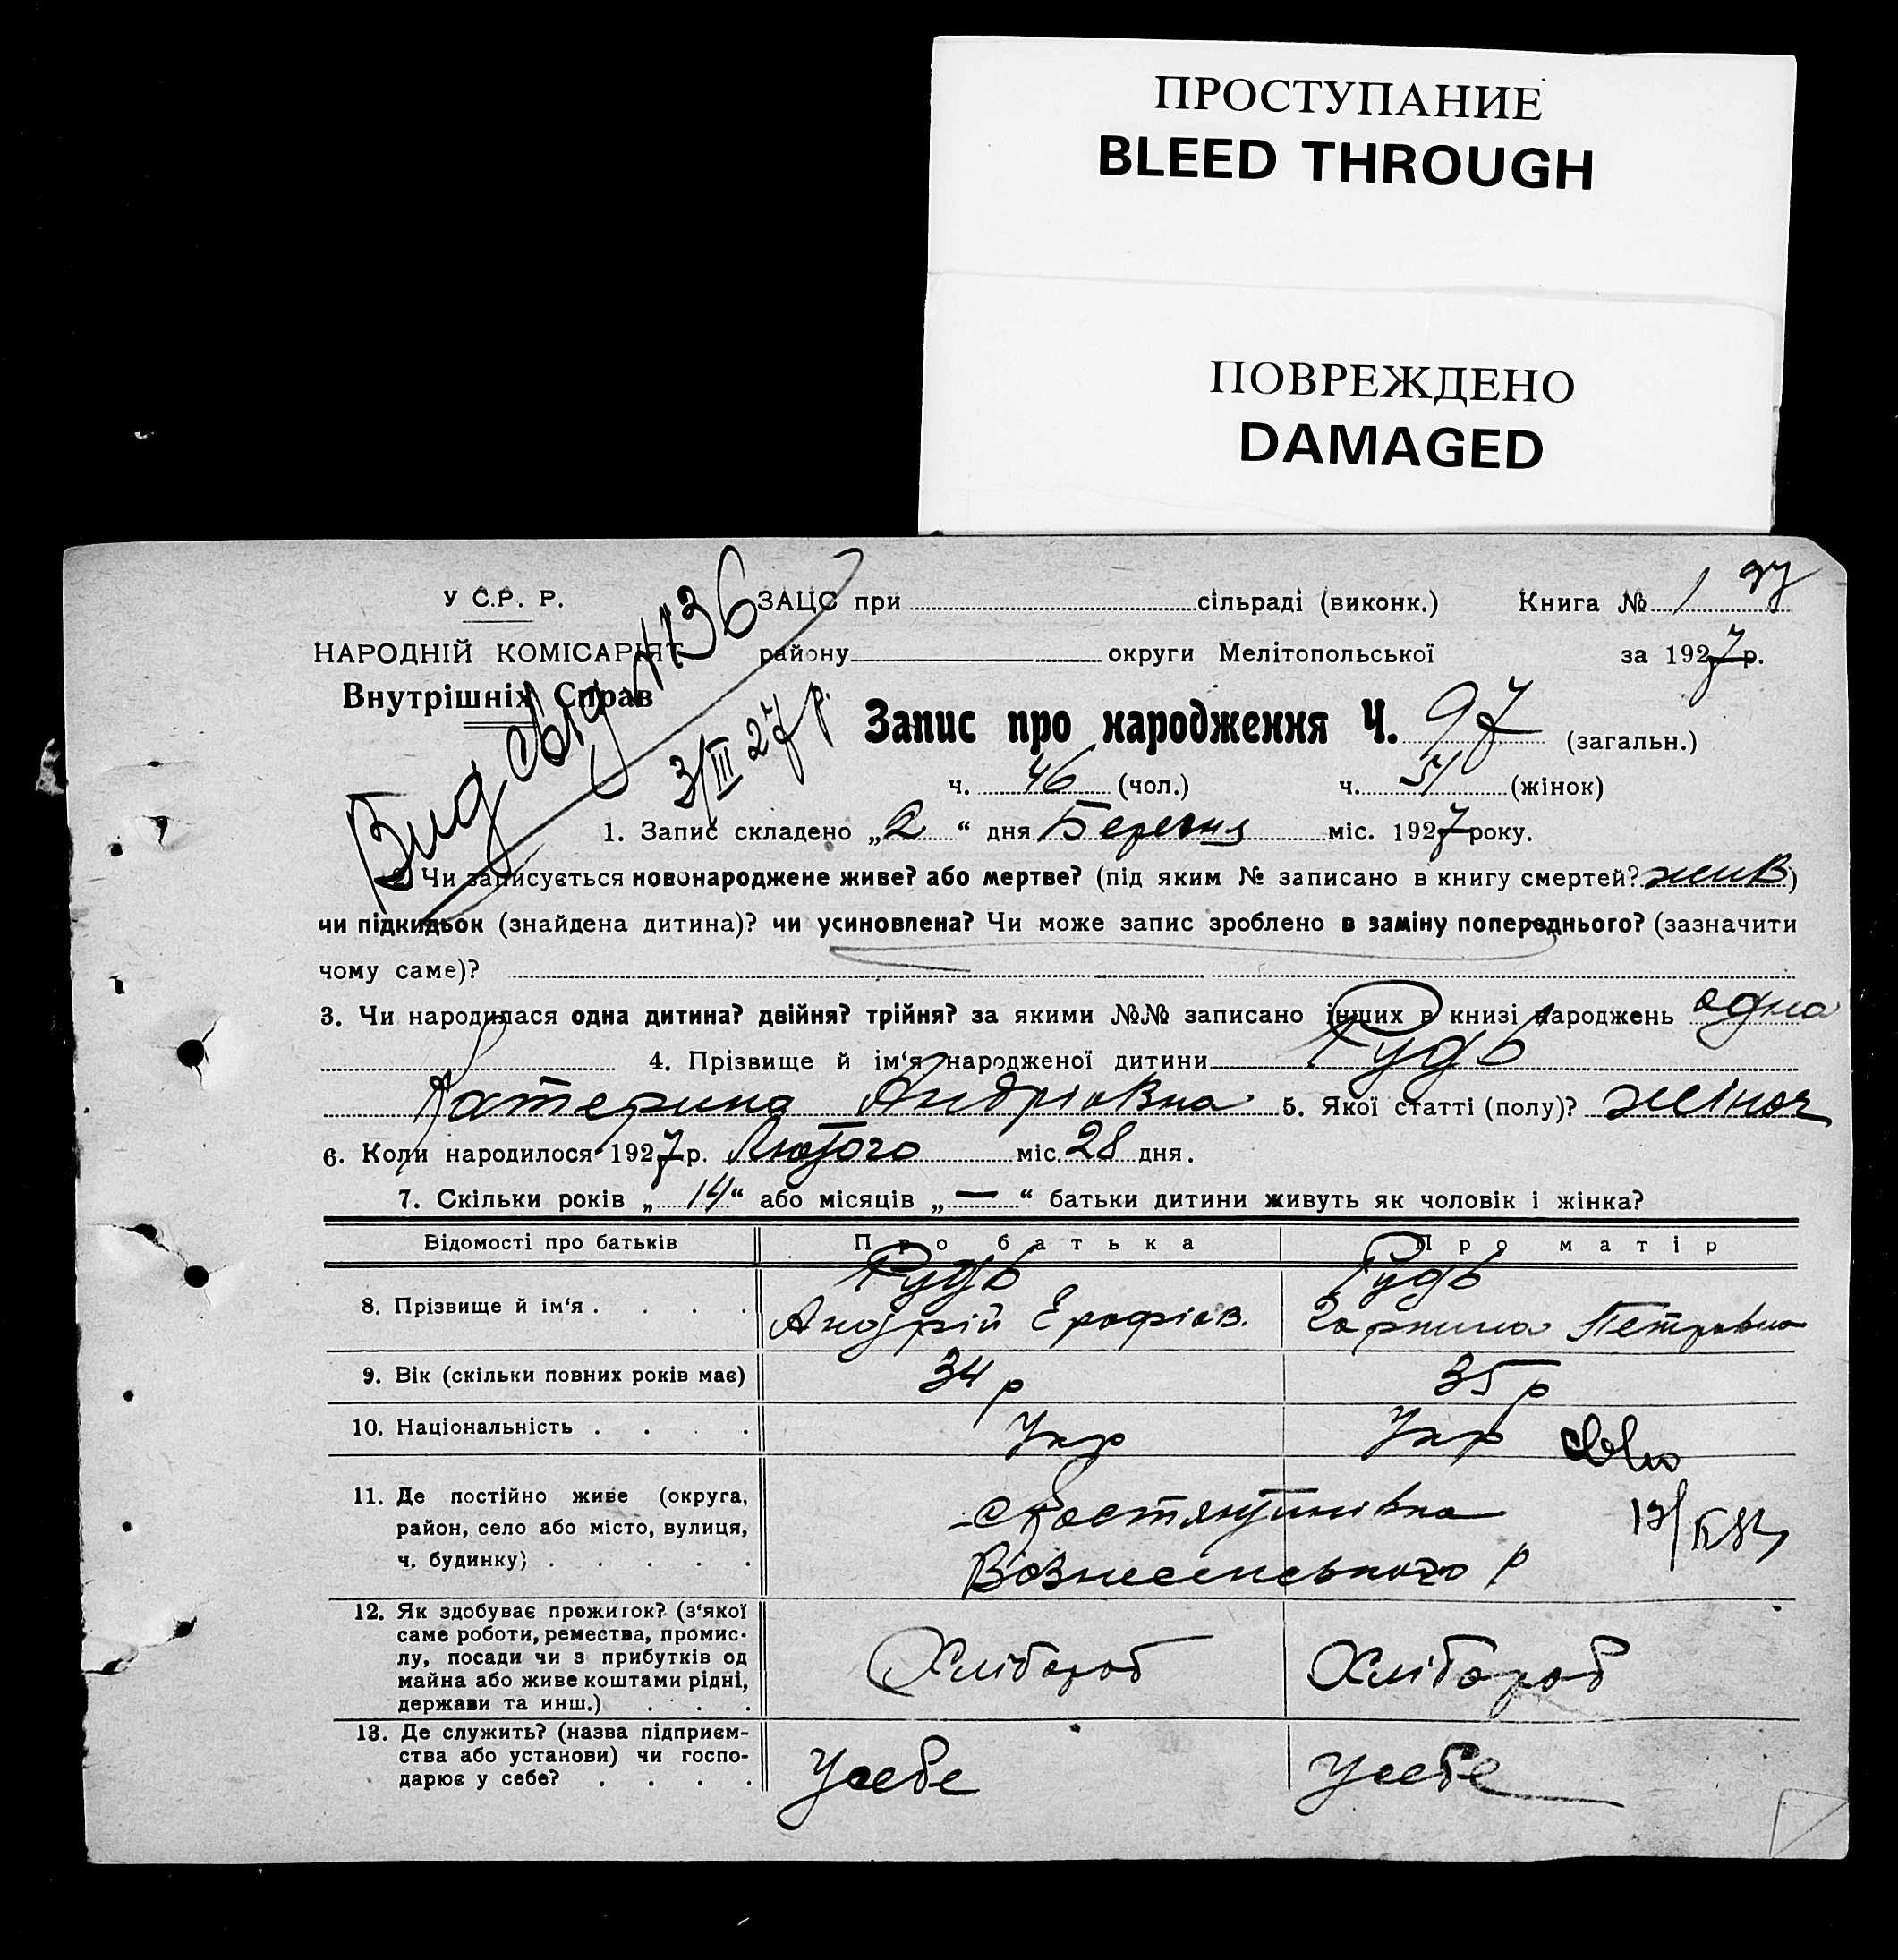 ПРОСТУПАНИЕ
BLEED THROUGH
ПОВРЕЖДЕНО
DAMAGED
97
У С.Р. Р. ЗАЦС при сільраді (виконк.) Книга № 1
НАРОДНІЙ КОМІСАРІЯТ району округи Мелітопольської за 1927 р.
Внутрішніх Справ
Вид 136
3/III 27 р.
Запис про народження Ч. 97 (загальн.)
ч. 46 (чол.) ч. 51 (жінок)
1. Запис складено „2“ дня Березня міс. 1927 року.
2. Чи записується новонароджене живе? або мертве? (під яким № записано в книгу смертей? жив)
чи підкидьок (знайдена дитина)? чи усиновлена? Чи може запис зроблено в заміну попереднього? (зазначити
чому саме)?
3. Чи народилася одна дитина? двійня? трійня? за якими №№ записано інших в книзі народжень одна
4. Прізвище й ім‘я народженої дитини Рудь
Катерина Андріівна 5. Якої статті (полу)? жіноч
6. Коли народилося 1927 р. Лютого міс. 28 дня.
7. Скільки років „14“ або місяців „—“ батьки дитини живуть як чоловік і жінка?
Відомості про батьків Про батька Про матір
8. Прізвище й ім‘я . . . . Рудь Рудь
Андрій Єрофіїв. Петровна
9. Вік (скільки повних років має) 34 р 35 р
10. Національність . . . . Укр Укр
11. Де постійно живе (округа,
район, село або місто, вулиця,
ч. будинку) . . . . .
с Костянтинівка
Вознесенського р
12. Як здобуває прожиток? (з‘якої
саме роботи, ремества, промис-
лу, посади чи з прибутків од
майна або живе коштами рідні,
держави та инш.) . . .
Хлібороб Хлібороб
13. Де служить? (назва підприєм-
ства або установи) чи госпо-
дарює у себе? . . . .
У себе У себе